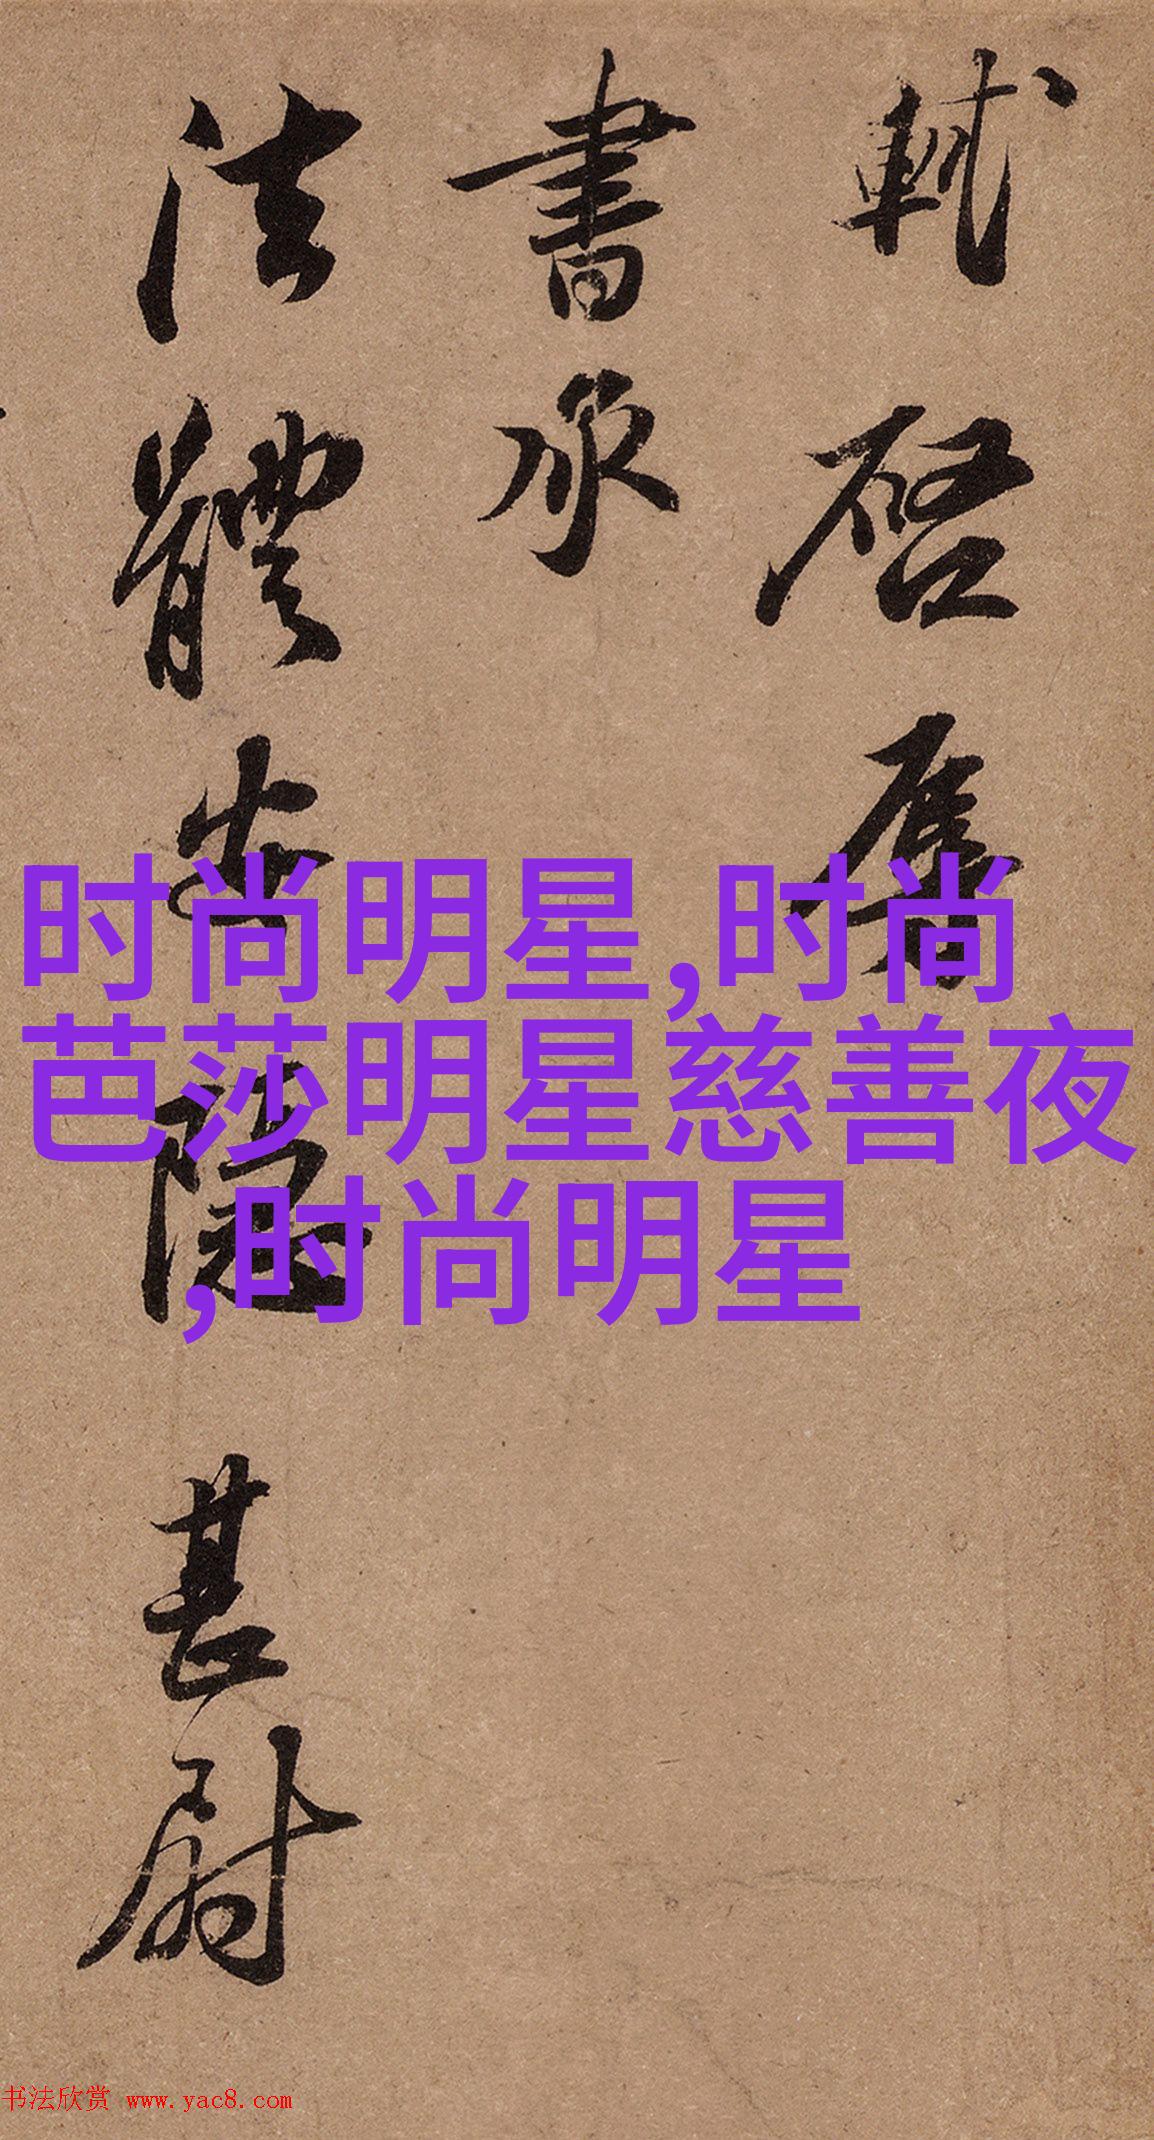 軾啓辱
書承
法體安隱甚尉
时尚明星,时尚
芭莎明星慈善夜
,时尚明星
书法欣赏 www.yac8.com